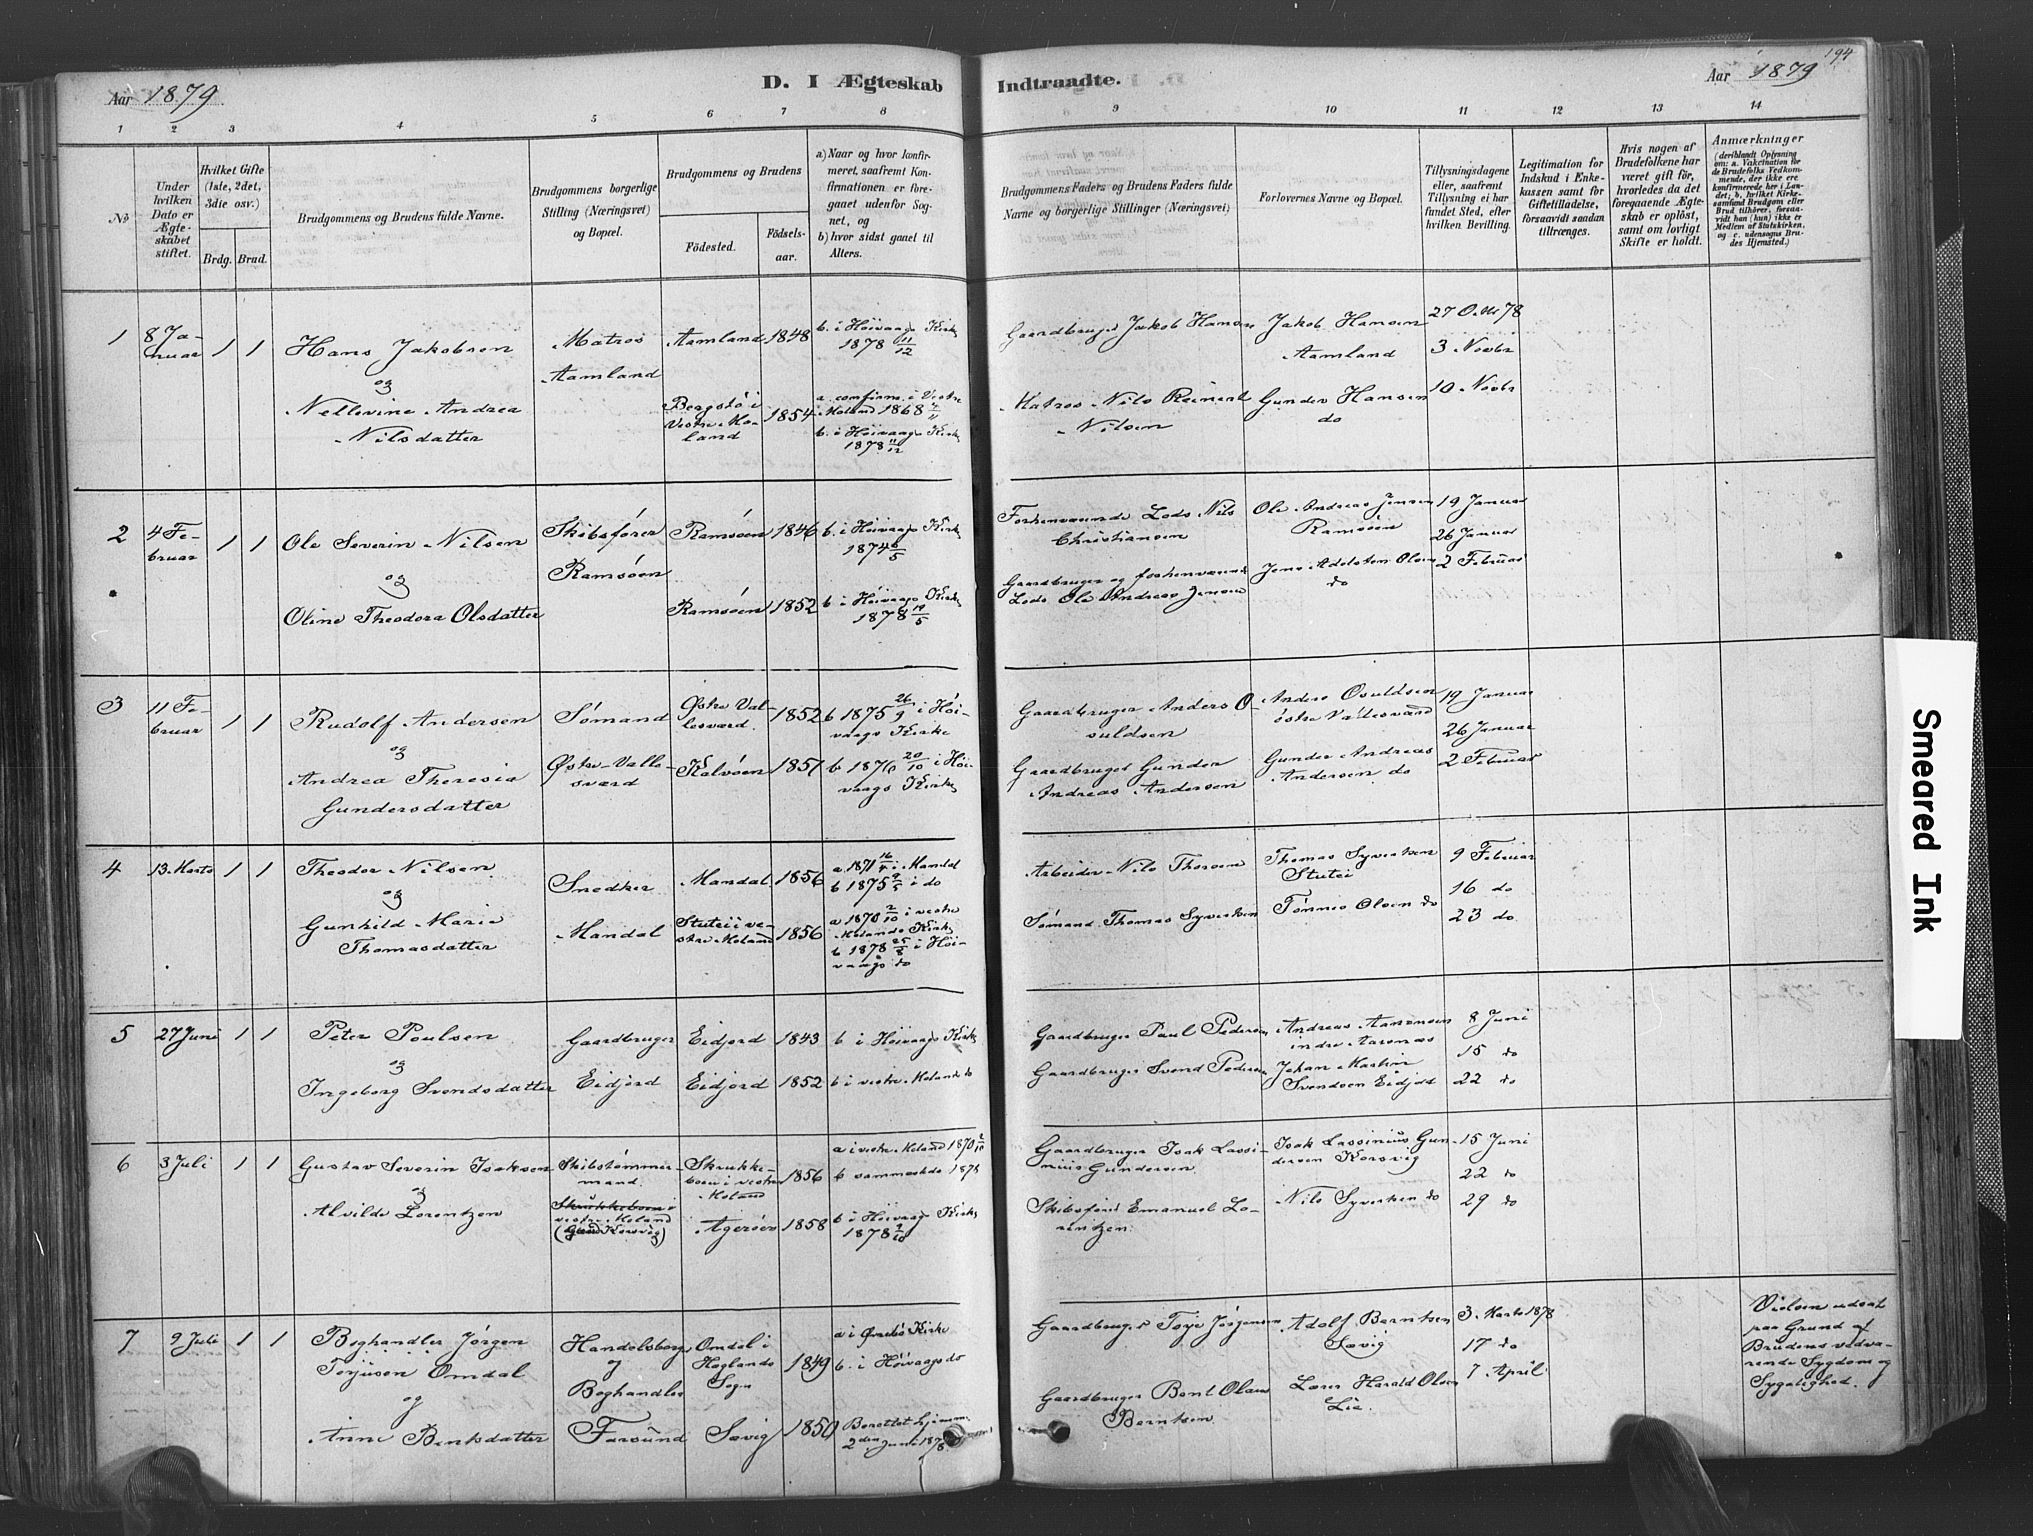 Aar 1879.
D. I Ægteskab Indtraadte.
Aar 1879
194
1 2 3 4 5 6 7 8 9 10 11 12 13 14
№
Under hvilken Dato er Ægte-skabet stiftet.
Hvilket Gifte (1ste, 2det, 3die osv.)
Brdg. Brud.
Brudgommens og Brudens fulde Navne.
Brudgommens borgerlige Stilling (Næringsvei) og Bopæl.
Brudgommens og Brudens
Födested.
Födsels-aar.
a) Naar og hvor konfir-meret, saafremt Kon-firmationen er fore-gaaet udenfor Sog-net, og
b) hvor sidst gaaet til Alters.
Brudgommens Faders og Brudens Faders fulde Navne og borgerlige Stillinger (Næringsvei)
Forlovernes Navne og Bopæl.
Tillysningsdagene eller, saafremt Tillysning ei har fundet Sted, efter hvilken Bevilling.
Legitimation for Indskud i Enke-kassen samt for Giftetilladelse, forsaavidt saadan tiltrænges.
Hvis nogen af Brudefolkene har været gift för, hvorledes da det foregaaende Ægte-skab er oplöst, samt om lovligt Skifte er holdt.
Anmærkninger
(deriblandt Oplysning om: a. Vakcination for de Brudefolks Vedkom-mende, der ikke ere konfirmerede her i Lan-det; b. hvilket Kirke-samfund Brudgom eller Brud tilhörer, forsaa-vidt han (hun) ikke er Medlem af Statskirken, og c. udensogns Bru-des Hjemsted.)
1
8 Ja-nuar
1 1
Hans Jakobsen
og
Nellevine Andrea
Nilsdatter
Matros
Aamland
Aamland 1848
b. i Höivaags Kirke
1878 11/12
Bergstö i
Vestre Mo-
land
1854
a. confirm. i Vestre
Moland 1868
b. i Höivaags Kirke
1878 11/12
Gaardbruger Jakob Hansen
Matros Nils Reinert
Nilsen
Jakob Hansen
Aamland
Gunder Hansen
do
27 Octbr 78
3 Novbr
10 Novbr
2
4 Fe-
bruar
1 1
Ole Severin Nilsen
og
Oline Theodora Olsdatter
Skibsförer
Ramsöen
Ramsöen 1846
b. i Höivaags Kirke
1874
Ramsöen 1852
b i Höivaags Kirke
1878 19/5
Forhenværende Lods Nils
Christiansen
Gaardbruger og forhenværende
Lods Ole Andreas Jensen
Ole Andreas Jensen
Ramsöen
Jens Adelsten Olsen
do
19 Januar
26 Januar
2 Februar
3
11 Fe-
bruar
1 1
Rudolf Andersen
og
Andrea Theresia
Gundersdatter
Sömand
Østre Valle-
sværd
Østre Val-
lesværd
1852
b 1875 26/9 i Höi-
vaags Kirke
Kalvöen 1857
b 1876 20/10 i Höi-
vaags Kirke
Gaardbruger Anders O-
suldsen
Gaardbruger Gunder
Andreas Andersen
Anders Osuldsen
östre Vallesværd
Gunder Andreas
Andersen do
19 Januar
26 Januar
2 Februar
4
13 Marts
1 1
Theodor Nilsen
og
Gunhild Marie
Thomasdatter
Snedker
Mandal
Mandal 1856
a 1871 16/4 i Mandal
b 1875 9/5 i do
Stutei i ve-
stre Moland
1856
a 1870 2/10 i vestre
Molands Kirke
b 1878 25/8 i Höi-
vaags do
Arbeider Nils Thorsen
Sömand Thomas Syvertsen
Thomas Syvertsen
Stutei
Tönnes Olsen do
9 Februar
16 do
23 do
5
27 Juni
1 1
Peter Poulsen
og
Ingeborg Svendsdatter
Gaardbruger
Eidjord
Eidjord 1843
b i Höivaags Kirke
Eidjord 1852
b i vestre Molands k
Gaardbruger Paul Pedersen
Gaardbruger Svend Pedersen
Andreas Aanonsen
indre Aaronæs
Johan Martin
Svendsen Eidjord
8 Juni
15 do
22 do
6
3 Juli
1 1
Gustav Severin Isaksen
og
Alvilde Lorentzen
Skibstömmer-
mand.
Skrukkeboen i
vestre Moland
Skrukke-
boen i vestre
Moland
1856
a i vestre Moland 1870 2/10
b sammesteds 1878
Agerøen 1858
b i Höivaags Kirke
1878 2/10
Gaardbruger Isak Lassi-
nius Gundersen
Skibsförer Emanuel Lo-
rentzen.
Isak Lassinius Gun-
dersen Korsvig
Nils Syvertsen do
15 Juni
22 do
29 do
7
9 Juli
1 1
Boghandler Jörgen
Torjusen Omdal
og
Anne Bentsdatter
Handelsborg
og
Boghandler
Farsund
Omdal i
Høglands
Sogn
1849
a i Øvrebö Kirke
b. i Höivaags do
Sævig 1850
Berettet hjemme
2den Juni 1878
Gaardbruger Toye Jörgensen
Gaardbruger Bent Olaus
Berntsen.
Adolf Berntsen
Sævig
Lærer Harald Olsen
Lie.
3. Marts 1878
17 do
7 April
Vielsen udsat
paa Grund af
Brudens vedva-
rende Sygdom og
Sygelighed.
Smeared Ink